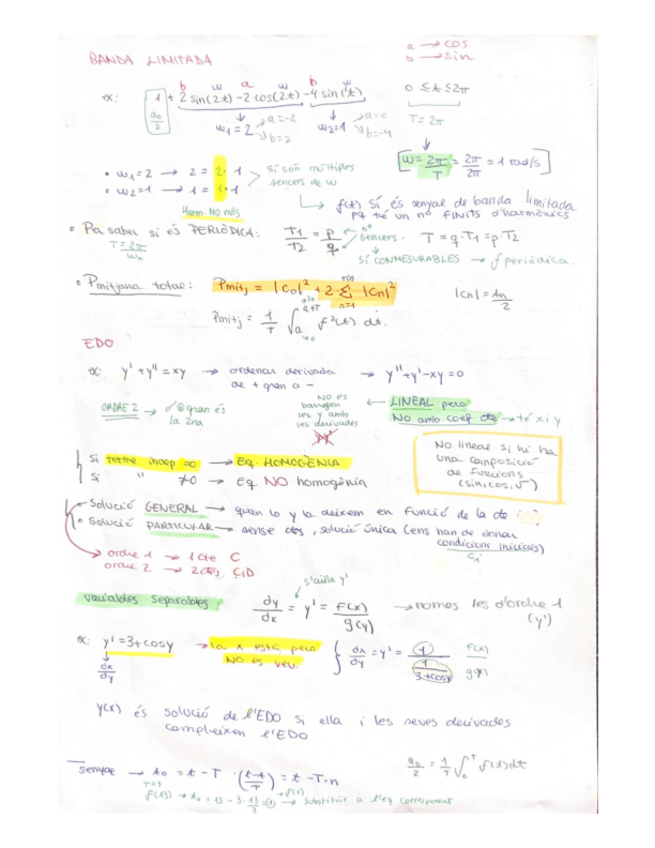 BANDA LIMITADA
a → cos
b → sin
ex: 1 + 2 sin(2t) - 2 cos(2t) - 4 sin(t)
b w a w b w
a0/2
w1 = 2 a=-2 b=2
w2=1 a=0 b=-4
0 ≤ t ≤ 2π
T = 2π
w = 2π/T = 2π/2π = 1 rad/s
• w1=2 → 2 = 2·1
• w2=1 → 1 = 1·1
Sí són múltiples
sencers de w
f(t) Sí és senyal de banda limitada
pq té un nº FINITS d'harmònics
Harm. NO nuls
• Per saber si és PERIÒDICA: T1/T2 = p/q nº sencers. T = q·T1 = p·T2
T = 2π/wn
sí CONMESURABLES → f periòdica.
• Pmitjana total: Pmitj = |C0|² + 2·Σ |Cn|²
n=1
|Cn| = An/2
Pmitj = 1/T ∫ f²(t) dt.
a+T
a
EDO
ex: y' + y'' = xy → ordenar derivada
de + gran a -
→ y''+y'-xy=0
ORDRE 2 → d' gran és
la 2na
NO és
les y amb
ses derivades
← LINEAL però
NO amb coef cte → té x i y
No lineal si hi ha
una composició
de funcions
(sin, cos, √)
Si terme indep =0 → Eq. HOMOGÈNIA
Si " ≠0 → Eq NO homogènia
• Solució GENERAL → quan la y la deixem en funció de la cte
• Solució PARTICULAR → sense ctes, solució única (ens han de donar
condicions inicials)
ci
ordre 1 → 1 cte C
ordre 2 → 2 ctes C,D
s'aïlla y'
variables separables: dy/dx = y' = f(x)/g(y) → només les d'ordre 1
(y')
ex: y' = 3+cosy → la x està però
NO es veu.
dx/dy
dx/dy = y' = 1/(1/3+cosy) f(x) g(y)
y(x) és solució de l'EDO si ella i les seves derivades
compleixen l'EDO
senyal → t0 = t - T · (t-t/T) = t - T·n
a0/2 = 1/T ∫ f(t)dt
T
0
T=3
f(13) → t0 = 13 - 3 · 13/3 = (1) → f(1) → substituir a l'eq corresponent